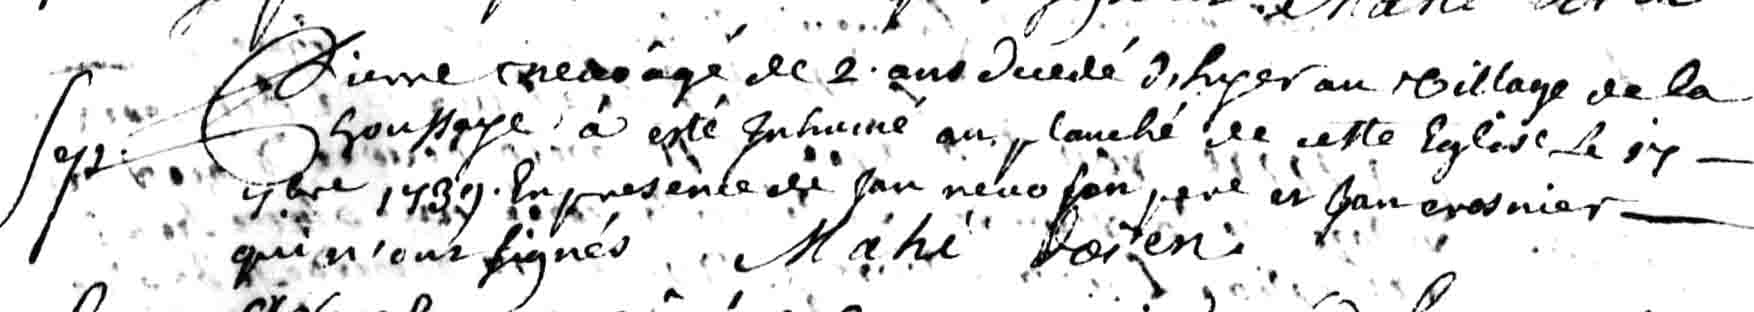 Pierre nevo âgé de 2. ans decedé d'hyer au village de la
Sep. houssaye à esté Inhumé au planché de cette Eglise Le 17
7bre 1739. En presence de Jan nevo son pere et Jan crosnier
qui n'ont signés Mahé doïen